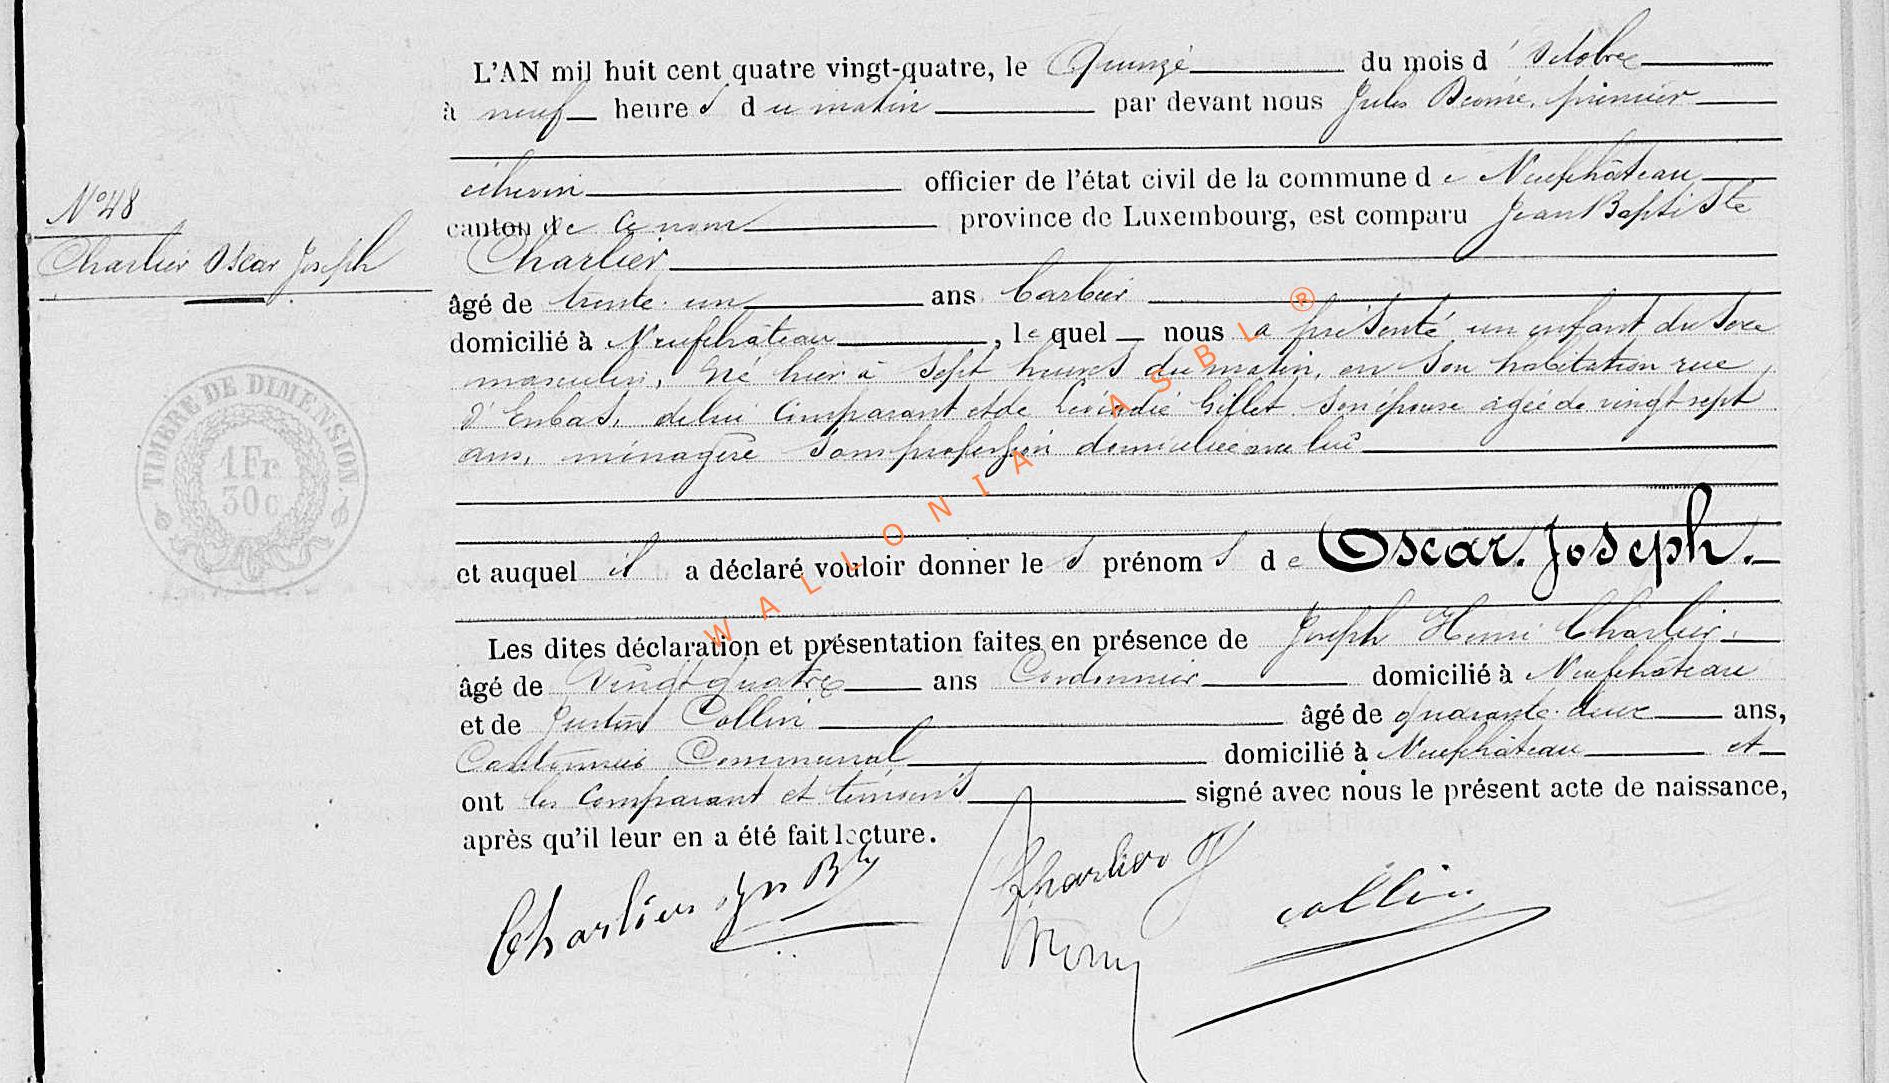 L'AN mil huit cent quatre vingt-quatre, le Quinze du mois d'Octobre
à neuf heures du matin par devant nous Jules premier
échevin officier de l'état civil de la commune de Neufchâteau
canton de ce nom province de Luxembourg, est comparu Jean Baptiste
Charlier
N° 48
Charlier Oscar Joseph
âgé de trente-un ans Barbier
domicilié à Neufchâteau, lequel nous a présenté un enfant du sexe
masculin, né hier à sept heures du matin, en son habitation rue
d'Enbas, de lui comparant et de Gillet son épouse agée de vingt sept
ans, ménagère sans profession domiciliée avec lui
TIMBRE DE DIMENSION.
1 Fr.
30 c.
et auquel il a déclaré vouloir donner les prénoms de Oscar. Joseph.
Les dites déclaration et présentation faites en présence de Joseph Henri Charlier
âgé de Vingt quatre ans Cordonnier domicilié à Neufchâteau
et de Justin Collin âgé de quarante-deux ans,
Cantonnier Communal domicilié à Neufchâteau et
ont les comparant et témoins signé avec nous le présent acte de naissance,
après qu'il leur en a été fait lecture.
Charlier Jn Bte Charlier J collin
WALLONIA ASBL ®